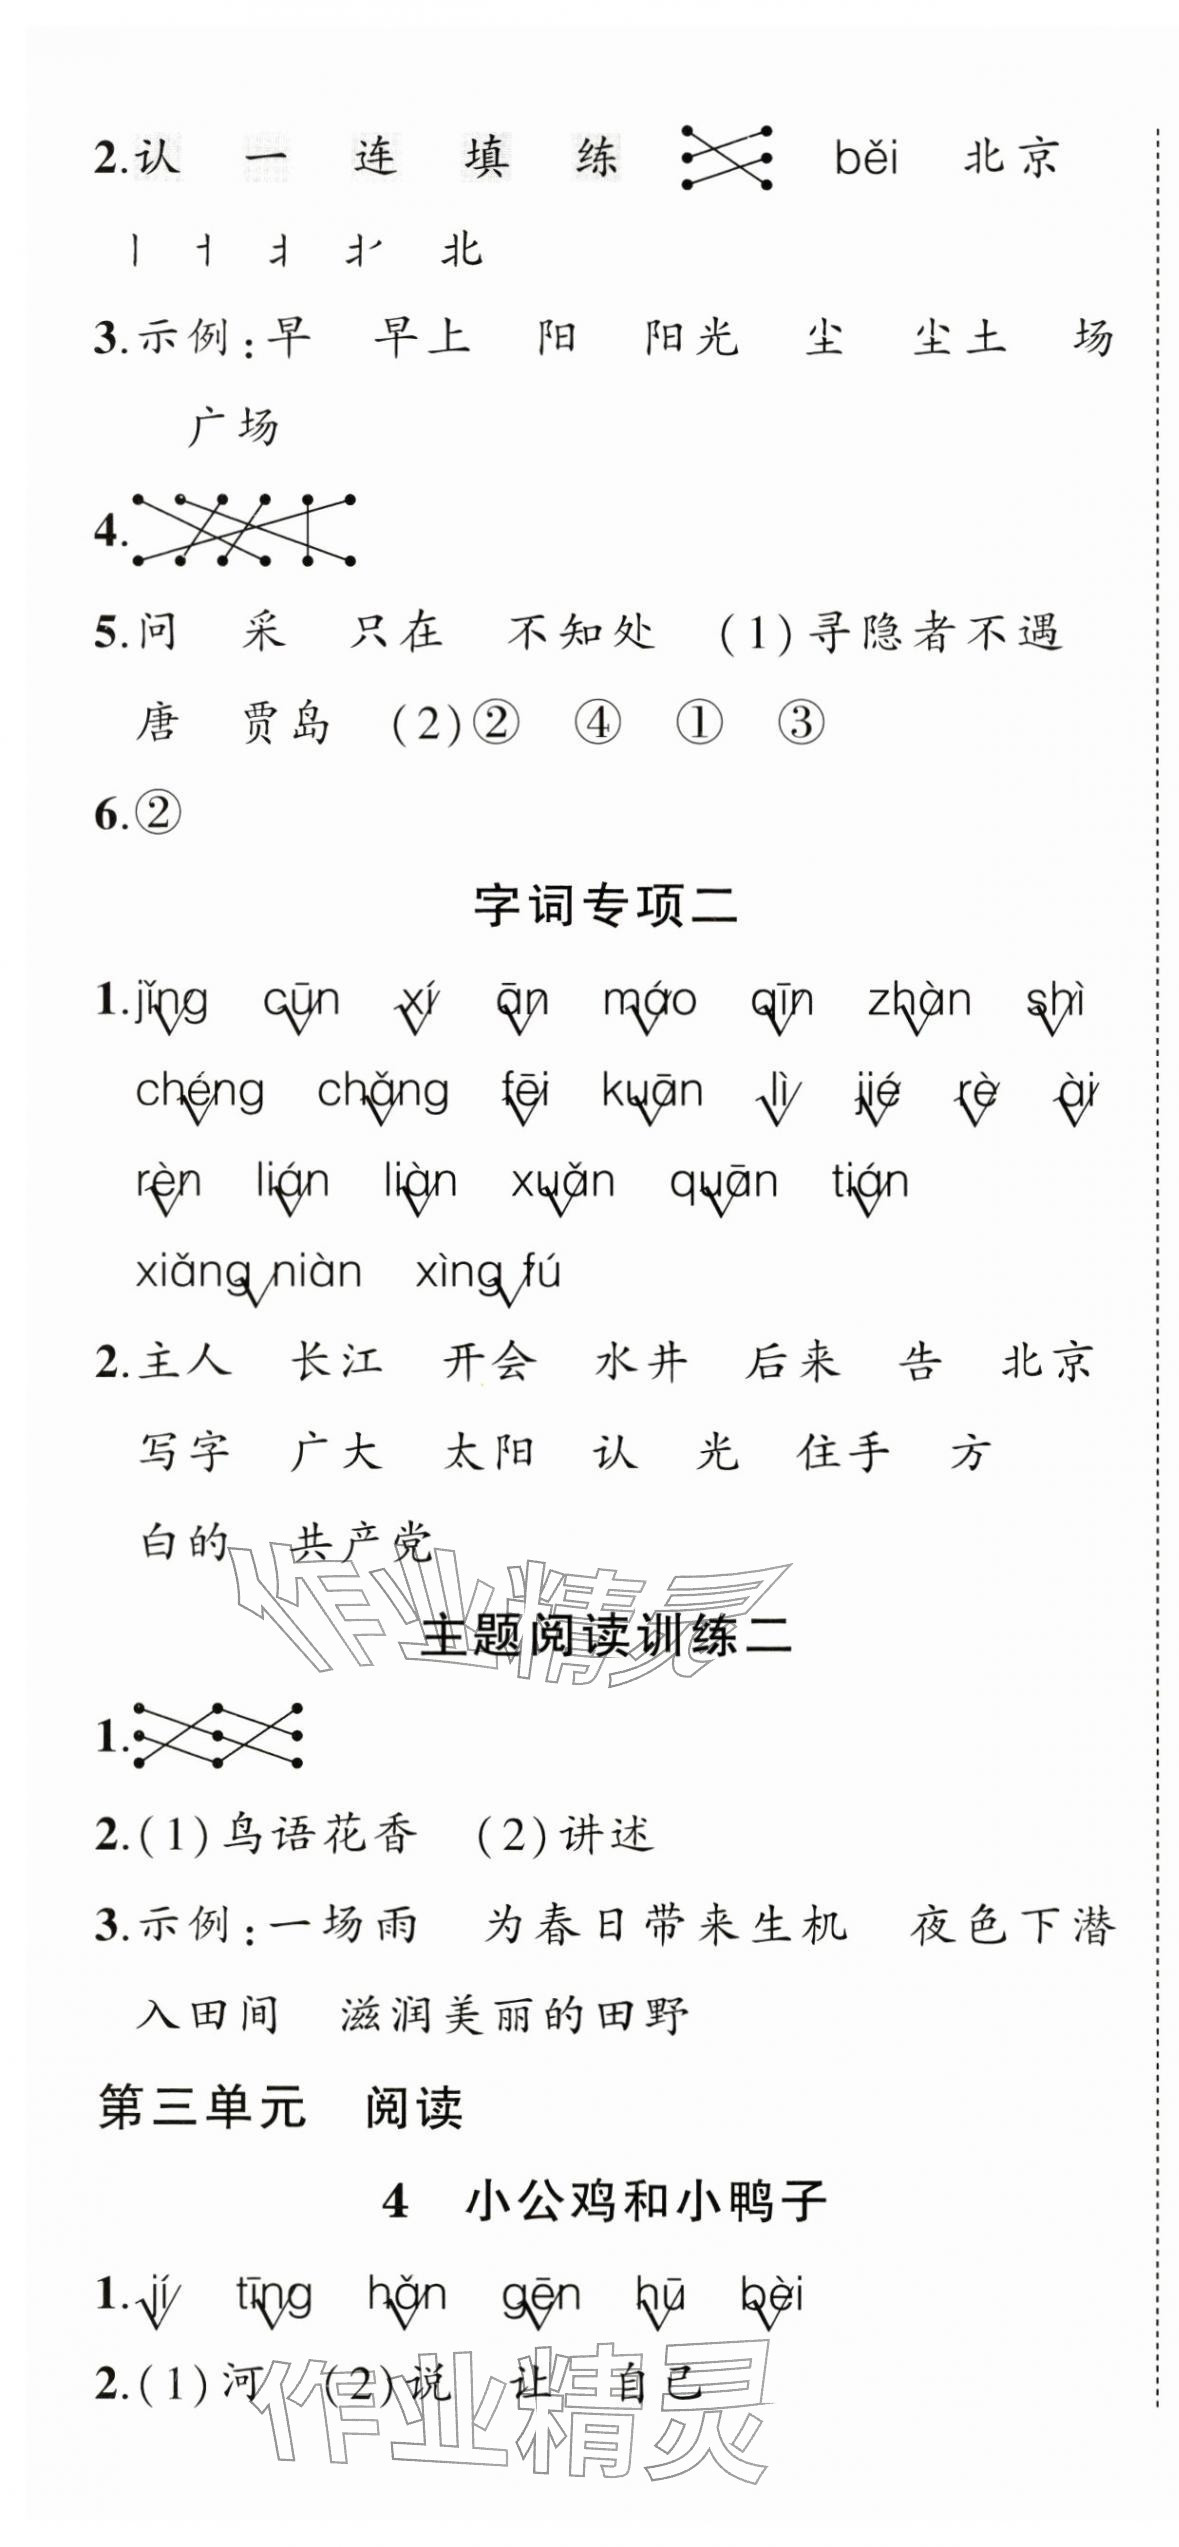 2.认 一 连 填 练 běi 北京
丨 ㇀ 北
3.示例:早 早上 阳 阳光 尘 尘土 场
广场
4.
5.问 采 只在 不知处 (1)寻隐者不遇
唐 贾岛 (2)② ④ ① ③
6.②
字词专项二
1.jǐng cūn xí ān máo qīn zhàn shì
chéng chǎng fēi kuān lì jié rè ài
rèn lián liàn xuǎn quān tián
xiǎng niàn xìng fú
2.主人 长江 开会 水井 后来 告 北京
写字 广大 太阳 认 光 住手 方
白的 共产党
作业精灵
主题阅读训练二
1.
2.(1)鸟语花香 (2)讲述
3.示例:一场雨 为春日带来生机 夜色下潜
入田间 滋润美丽的田野
第三单元 阅读
4 小公鸡和小鸭子
1.jí tīng hǎn gēn hū bèi
2.(1)河 (2)说 让 自己
作业精灵